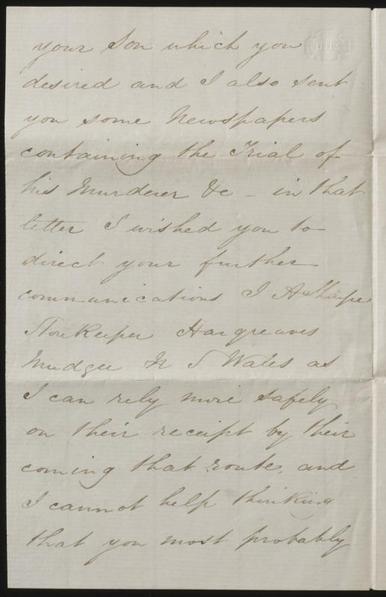 your Son which you
desired and I also sent
you some Newspapers
containing the Trial of
his Murderer &c - in that
letter I wished you to
direct your further
communications J A Sharpe
Storekeeper Hargreaves
Mudgee N S Wales as
I can rely more safely
on their receipt by their
coming that route, and
I cannot help thinking
that you most probably